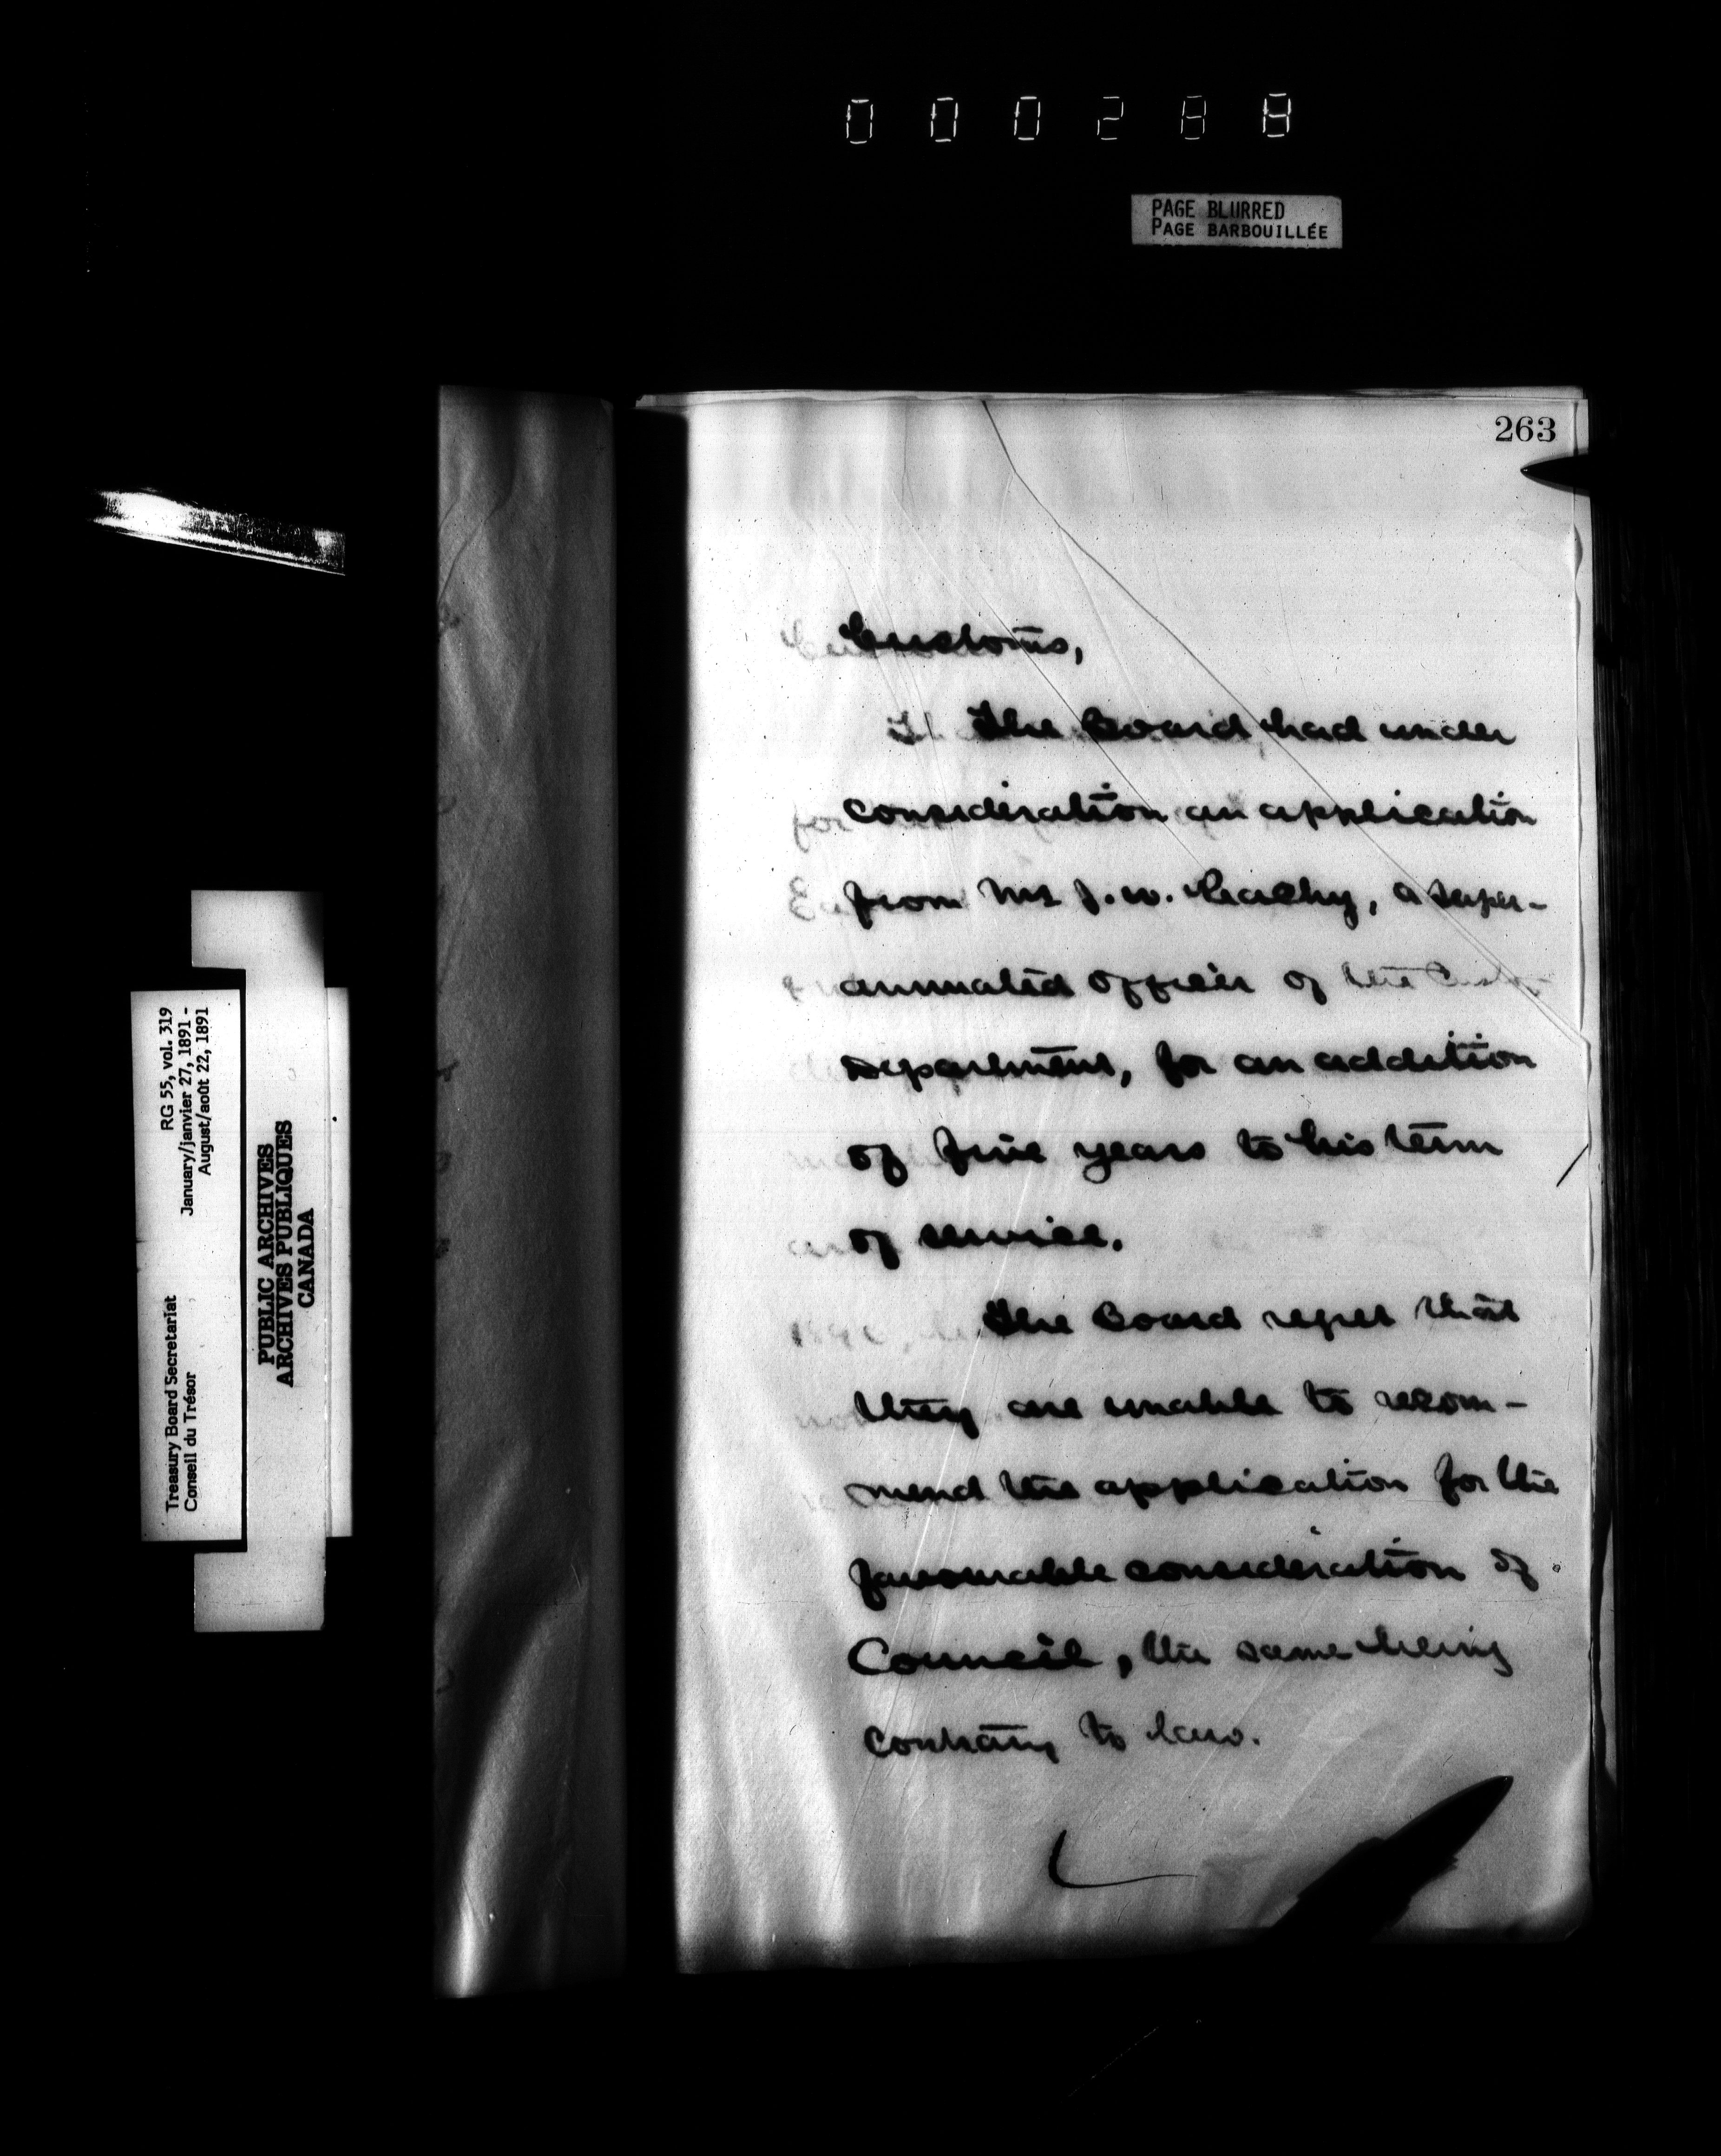 000288
PAGE BLURRED
PAGE BARBOUILLÉE
263
Customs,
The Board had under
consideration an application
from Mr J. W. a super-
annuated officer of the
Department, for an addition
of five years to his term
of service.
The Board regret that
they are unable to recom-
mend the application for the
favourable consideration of
Council, the same being
contrary to law.
Treasury Board Secretariat RG 55, vol. 319
Conseil du Trésor January/janvier 27, 1891 -
August/août 22, 1891
PUBLIC ARCHIVES
ARCHIVES PUBLIQUES
CANADA